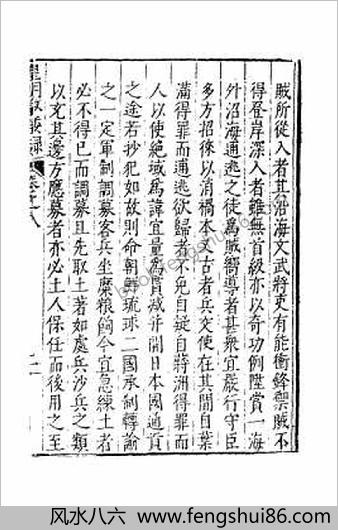 賊所從入者其沿海文武將吏有能衝鋒禦賊不
得登岸深入者雖無首級亦以奇功例陞賞一海
外沿海逋逃之徒為賊嚮導者甚衆宜嚴行守臣
多方招徠以消禍本又古者兵交使在其間自葉
滿得罪而逋逃欲歸者不免自疑自蔣洲得罪而
人以使絶域為諱宜量為貰減并開日本國通貢
之途若抄犯如故則命朝鮮琉球二國承制轉諭
之一定軍制調募客兵坐糜粮餉今宜急練土著
必不得已而調募且先取土著如處兵沙兵之類
以充其邊方應募者亦必土人保任而後用之至
风水八六 www.fengshui86.com